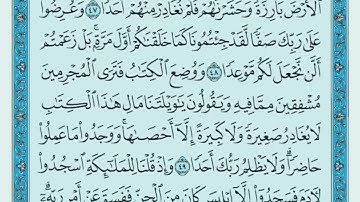 ٱلْأَرْضَ بَارِزَةً وَحَشَرْنَٰهُمْ فَلَمْ نُغَادِرْ مِنْهُمْ أَحَدًا ٤٧ وَعُرِضُوا۟
عَلَىٰ رَبِّكَ صَفًّا لَّقَدْ جِئْتُمُونَا كَمَا خَلَقْنَٰكُمْ أَوَّلَ مَرَّةٍۭ ۚ بَلْ زَعَمْتُمْ
أَلَّن نَّجْعَلَ لَكُم مَّوْعِدًا ٤٨ وَوُضِعَ ٱلْكِتَٰبُ فَتَرَى ٱلْمُجْرِمِينَ
مُشْفِقِينَ مِمَّا فِيهِ وَيَقُولُونَ يَٰوَيْلَتَنَا مَالِ هَٰذَا ٱلْكِتَٰبِ
لَا يُغَادِرُ صَغِيرَةً وَلَا كَبِيرَةً إِلَّآ أَحْصَىٰهَا ۚ وَوَجَدُوا۟ مَا عَمِلُوا۟
حَاضِرًا ۗ وَلَا يَظْلِمُ رَبُّكَ أَحَدًا ٤٩ وَإِذْ قُلْنَا لِلْمَلَٰٓئِكَةِ ٱسْجُدُوا۟
لِـَٔادَمَ فَسَجَدُوٓا۟ إِلَّآ إِبْلِيسَ كَانَ مِنَ ٱلْجِنِّ فَفَسَقَ عَنْ أَمْرِ رَبِّهِۦٓ ۗ